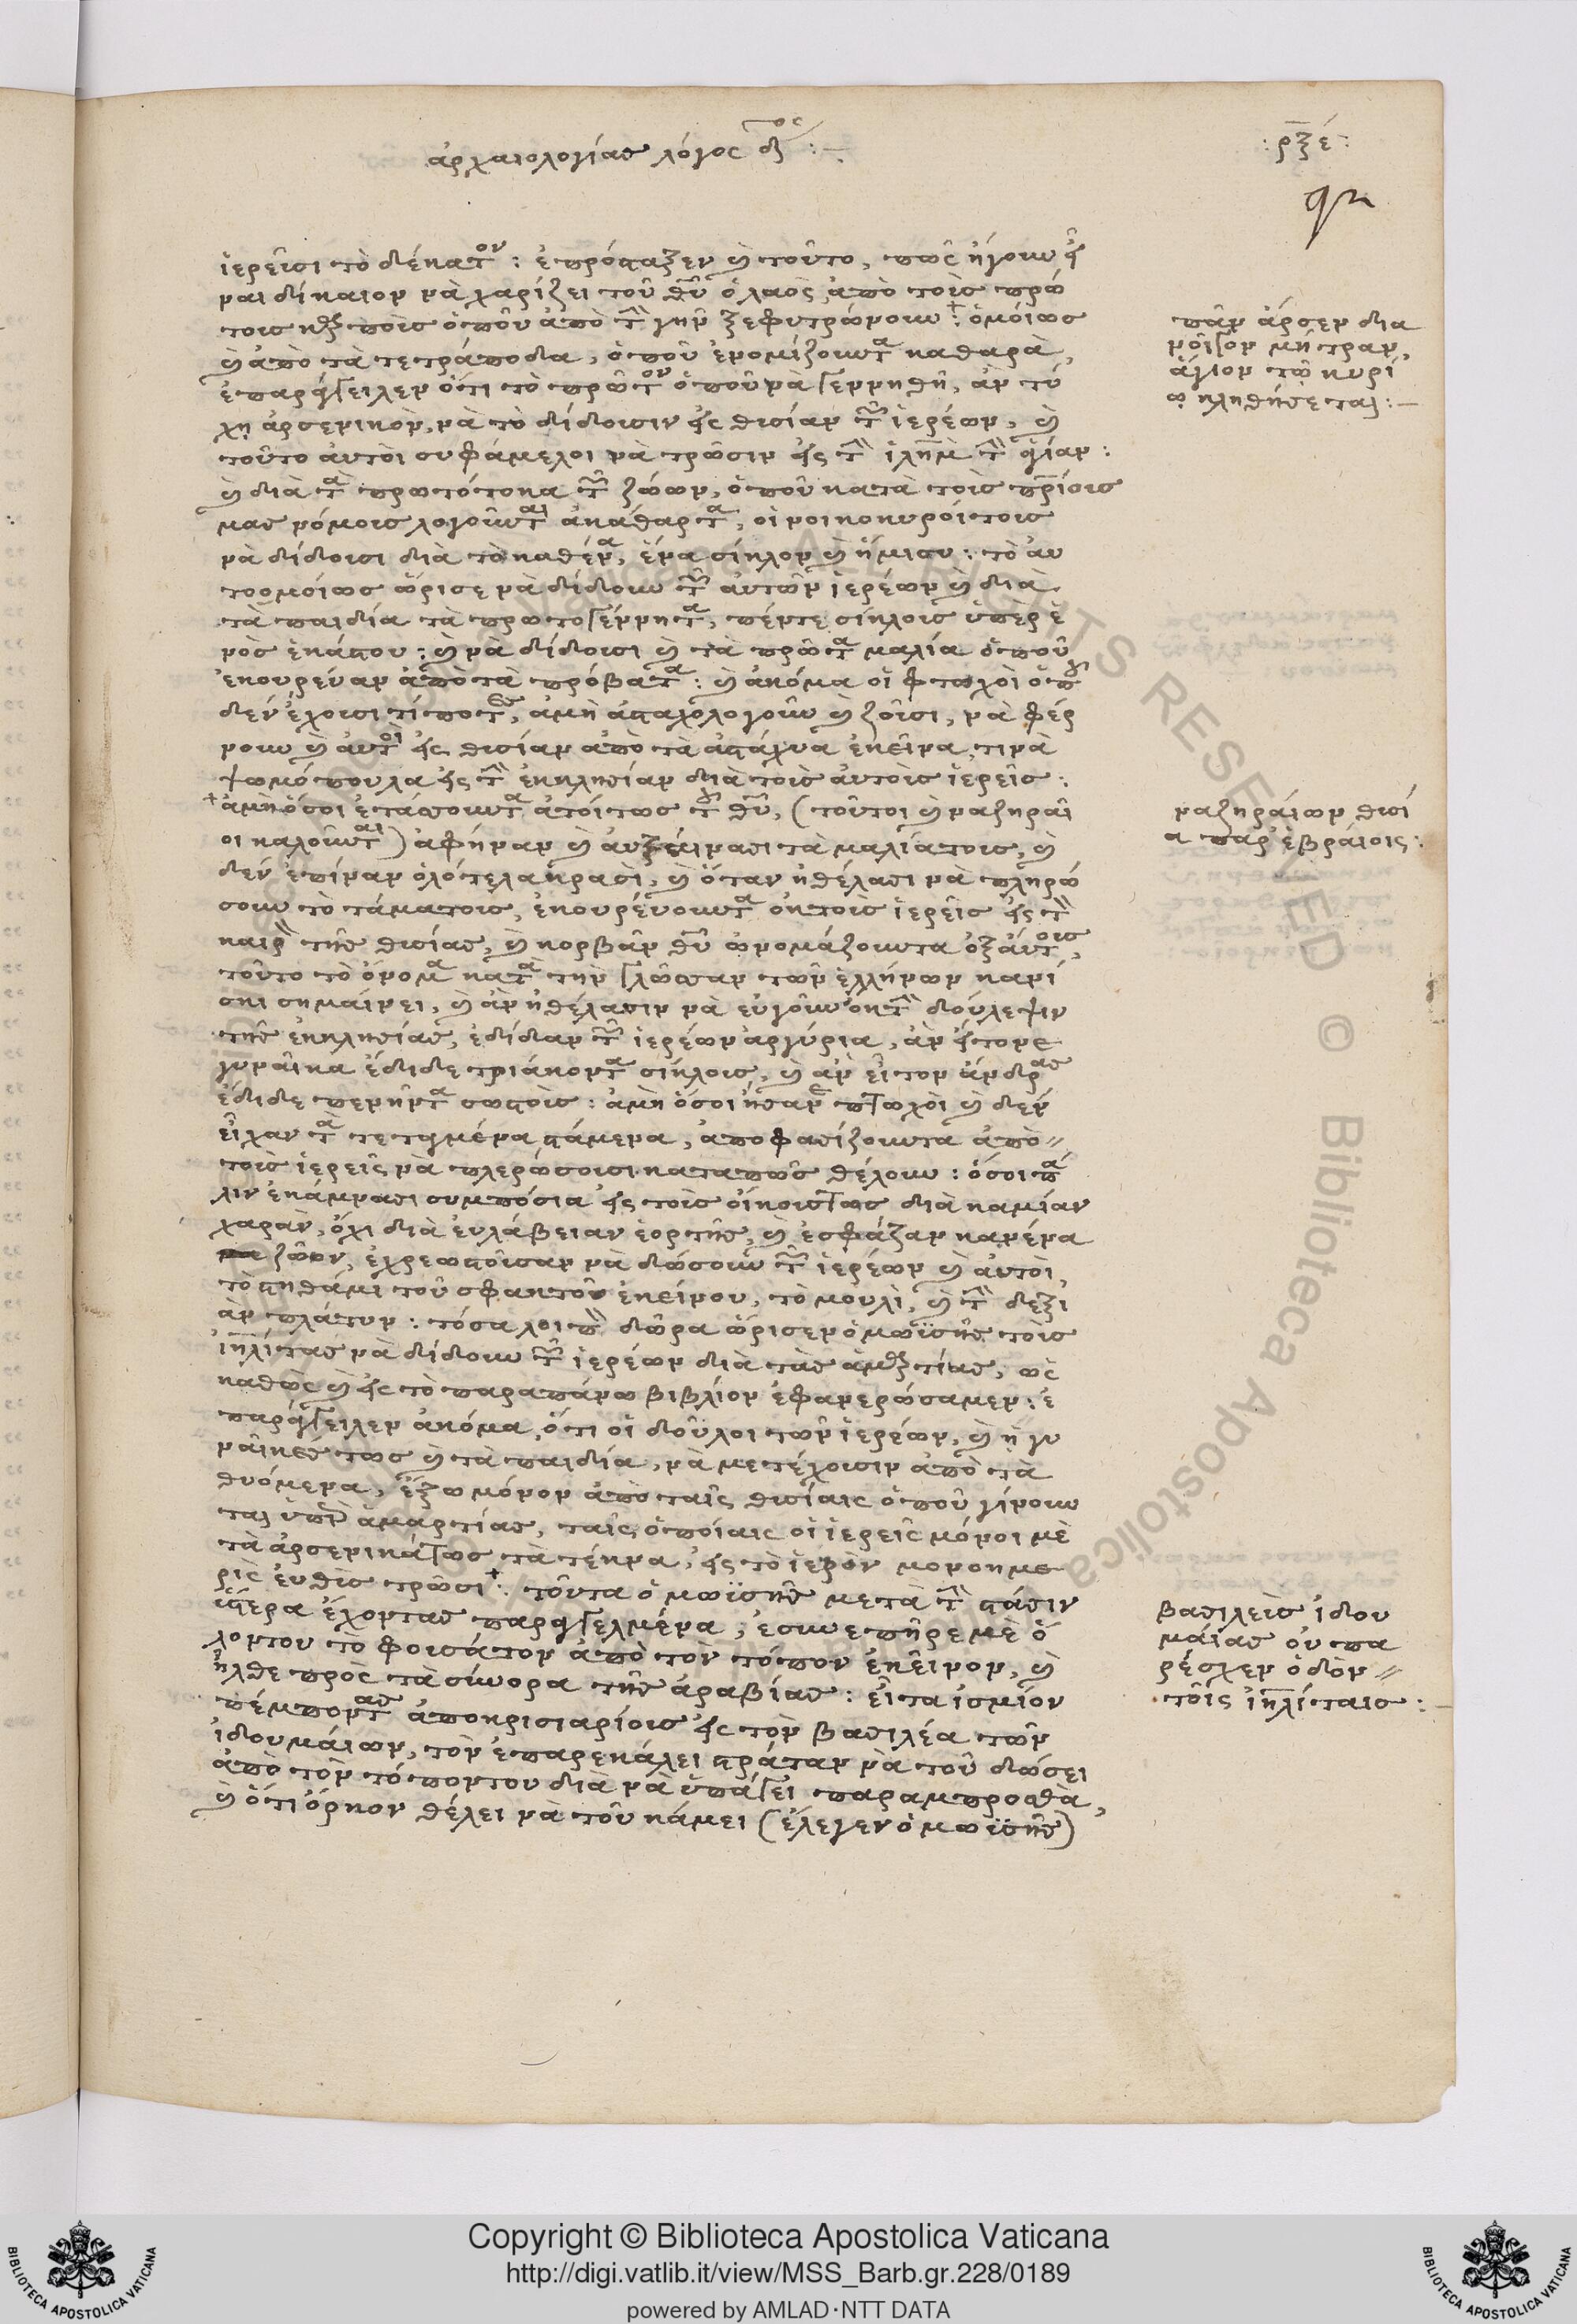 ἀρχαιολογίας λόγος δος :-
: ρξέ :
ἱερεῖσι τὸ δέκατον : ἐπρόσταξεν καὶ τοῦτο, πῶς ἤγουν εἶ
ναι δίκαιον νὰ χαρίζει τοῦ θῦ ὁ λαὸς ἀπὸ τοὶς πρώ
τοις καρποὶς ὁποῦ ἀπὸ τὴν γὴν ξεφυτρώνουν : ὁμοίως
καὶ ἀπὸ τὰ τετράποδα, ὁποῦ ἐνομίζουντα καθαρὰ,
ἐπαρήγγειλεν ὅτι τὸ πρῶτον ὁποῦ νὰ γεννηθῆ, ἂν τύ
χη ἀρσενικὸν, νὰ τὸ δίδοισιν εἰς θισίαν τῶν ἱερέων, καὶ
τοῦτο ἀυτοὶ συφάμελοι νὰ τρῶσιν εἰς τὴν ἱλημ τὴν ἁγίαν :
καὶ διὰ τὰ πρωτότοκα τῶν ζώων, ὁποῦ κατὰ τοὶς πρίοις
μας νόμοις λογοῦνται ἀκάθαρτα, οἱ νοικοκυροίτοις
νὰ δίδοισι διὰ τὸ καθένα, ἕνα σίκλον καὶ ἥμισυ : τὸ ἀυ
τοομοίως ὥρισε νὰ δίδουν τῶν ἀυτῶν ἱερέων καὶ διὰ
τὰ παιδία τὰ πρωτογέννητα, πέντε σίκλοις ὑπὲρ ἑ
νὸς ἑκάστου : καὶ νὰ δίδοισι καὶ τὰ πρῶτα μαλία ὁποῦ
ἐκουρέναν ἀπὸ τὰ πρόβατα : καὶ ἀκόμα οἱ φτωχοὶ ὁποῦ
δεν ἔχοισι τίποτες, ἀμὴ ἀσταχολογοῦν καὶ ζοῦσι, νὰ φέρ
νουν καὶ ἀυτοὶ εἰς θισίαν ἀπὸ τὰ ἀστάχυα ἐκεῖνα, τινὰ
ψωμόπουλα εἰς τὴν ἐκκλησίαν διὰ τοὶς ἀυτοὶς ἱερεῖς :
ἀμὴ ὅσοι ἐτάσσουντα ἀτοίτως τοῦ θῦ, (τοῦτοι καὶ ναζηραῖ
οι καλοῦνται) ἀφήναν καὶ ἀυξείνασι τὰ μαλίατοις, καὶ
δεν ἐπίναν ὁλότελα κρασὶ, καὶ ὅταν ἠθέλασι νὰ πληρώ
σουν τὸ τάματοις, ἐκουρένουντα ὀκ τοὶς ἱερεῖς εἰς τὸν
καιρὸν τῆς θισίας, καὶ κορβᾶν θῦ ὠνομάζουντα ὀξ ἀυτοις,
τοῦτο τὸ ὄνομα κατὰ τὴν γλῶσσαν τῶν ἑλλήνων κανί
σκι σημαίνει, καὶ ἂν ἠθέλασιν νὰ εὐγοῦν ὀκ τὴν δούλεψιν
τῆς ἐκκλησίας, ἐδίδαν τῶν ἱερέων ἀργύρια, ἂν εἶτονε
γυναῖκα ἔδιδε τριάκοντα σίκλοις, καὶ ἂν εἶτον ἄνδρας
ἔδιδε πενῆντα σωστοὶς : ἀμὴ ὅσοι ἦσανε πτωχοὶ καὶ δεν
εἶχαν τὰ τεταμένα στάμενα, ἀποφασίζουντα ἀπὸ
τοὶς ἱερεῖς νὰ πλερώσοισι καταπῶς θέλουν : ὅσοι πά
λιν ἐκάμνασι συμπόσια εἰς τοὶς οἴκοιστως διὰ καμίαν
χαρὰν, ὄχι διὰ ἐυλάβειαν ἑορτῆς, καὶ ἐσφάζαν κανένα
ζῶον, ἐχρεωστοῖσαν νὰ δώσουν τῶν ἱερέων καὶ ἀυτοὶ,
τὸ στηθάμι τοῦ σφακτοῦ ἐκείνου, τὸ μουλὶ, καὶ τὴν δεξι
ὰν πλάτην : τόσα λοιπὸν δῶρα ὥρισεν ὁ μωϊσῆς τοὶς
ἰηλίτας νὰ δίδουν τῶν ἱερέων διὰ τὰς ἁμαρτίας, ὡς
καθὼς καὶ εἰς τὸ παραπάνω βιβλίον ἐφανερώσαμεν : ἐ
παρήγγειλεν ἀκόμα, ὅτι οἱ δοῦλοι τῶν ἱερέων, καὶ ἡ γυ
ναῖκες τως καὶ τὰ παιδία, νὰ μετέχοισιν ἀπὸ τὰ
θυόμενα, ἔξω μόνον ἀπὸ ταῖς θισίαις ὁποῦ γίνουν
ται ὑπὲρ ἁμαρτίας, ταῖς ὁποίαις οἱ ἱερεῖς μόνοι μὲ
τὰ ἀρσενικάτως τὰ τέκνα, εἰς τὸ ἱερὸν μονοημε
ρὶς ἐυθὶς τρῶσι : τοῦτα ὁ μωϊσῆς μετὰ τὴν στάσιν
ὕστερα ἔχοντας παρηγγελμένα, ἐσυνεπῆρε μὲ ὅ
λοντου τὸ φοισάτον ἀπὸ τὸν τόπον ἐκεῖνον, καὶ
ἦλθε πρὸς τὰ σύνορα τῆς ἀραβίας : εἶτα ἰσμίον
πέμποντας ἀποκρισιαρίοις εἰς τὸν βασιλέα τῶν
ἰδουμαίων, τὸν ἐπαρεκάλει στράταν νὰ τοῦ δώσει
ἀπὸ τὸν τόποντου διὰ νὰ ὑπάγει παραμπροσθὰ,
καὶ ὅτι ὅρκον θέλει νὰ τοῦ κάμει (ἔλεγεν ὁ μωϊσῆς)
πᾶν ἄρσεν δια
νοῖγον μήτραν,
ἅγιον τῶ κυρί
ω κληθήσεται :-
ναζηραίων θισί
α παρ' ἑβραίοις :
βασιλεὶς ἰδου
μαίας οὐ πα
ρέσχεν ὁδὸν
τοῖς ἰηλίταις :-
Copyright © Biblioteca Apostolica Vaticana
http://digi.vatlib.it/view/MSS_Barb.gr.228/0189
powered by AMLAD·NTT DATA
BIBLIOTECA APOSTOLICA VATICANA
BIBLIOTECA APOSTOLICA VATICANA